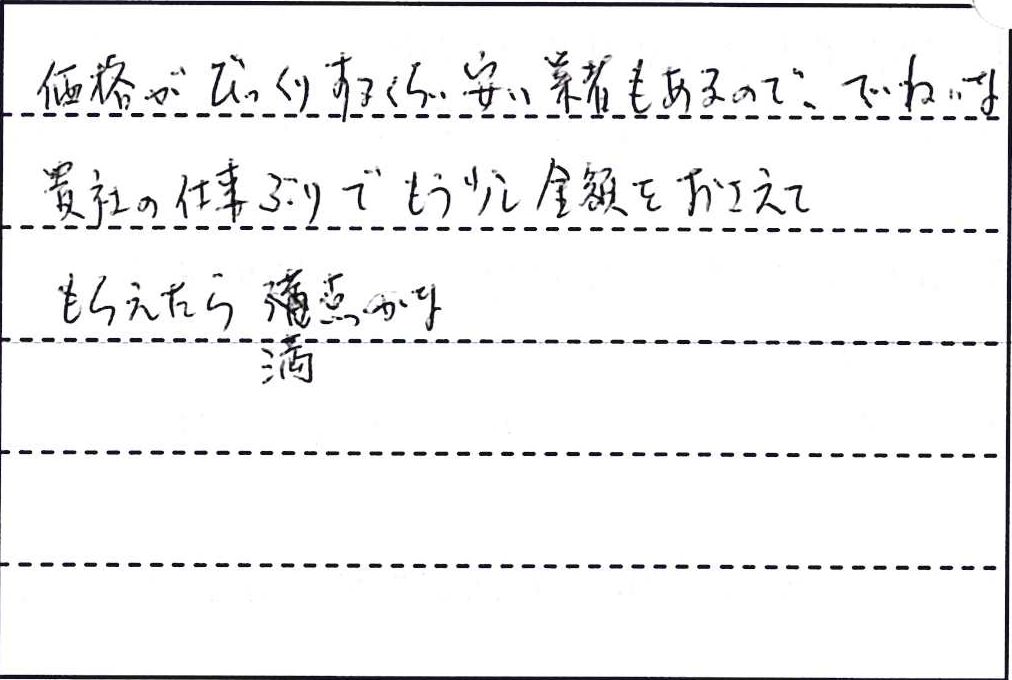 価格がびっくりするくらい安い業者もあるので、ていねいな
貴社の仕事ぶりでもう少し金額をおさえて
もらえたら満点かな
満